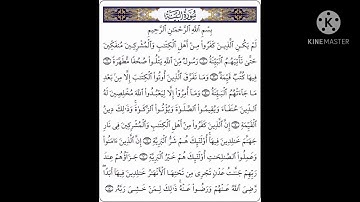 سُورَةُ البَيِّنَةِ
بِسْمِ ٱللَّهِ ٱلرَّحْمَٰنِ ٱلرَّحِيمِ
لَمْ يَكُنِ ٱلَّذِينَ كَفَرُوا۟ مِنْ أَهْلِ ٱلْكِتَٰبِ وَٱلْمُشْرِكِينَ مُنفَكِّينَ
حَتَّىٰ تَأْتِيَهُمُ ٱلْبَيِّنَةُ ۝ رَسُولٌ مِّنَ ٱللَّهِ يَتْلُوا۟ صُحُفًا مُّطَهَّرَةً ۝
فِيهَا كُتُبٌ قَيِّمَةٌ ۝ وَمَا تَفَرَّقَ ٱلَّذِينَ أُوتُوا۟ ٱلْكِتَٰبَ إِلَّا مِنۢ بَعْدِ
مَا جَآءَتْهُمُ ٱلْبَيِّنَةُ ۝ وَمَآ أُمِرُوٓا۟ إِلَّا لِيَعْبُدُوا۟ ٱللَّهَ مُخْلِصِينَ لَهُ
ٱلدِّينَ حُنَفَآءَ وَيُقِيمُوا۟ ٱلصَّلَوٰةَ وَيُؤْتُوا۟ ٱلزَّكَوٰةَ وَذَٰلِكَ دِينُ
ٱلْقَيِّمَةِ ۝ إِنَّ ٱلَّذِينَ كَفَرُوا۟ مِنْ أَهْلِ ٱلْكِتَٰبِ وَٱلْمُشْرِكِينَ فِى نَارِ
جَهَنَّمَ خَٰلِدِينَ فِيهَآ أُو۟لَٰٓئِكَ هُمْ شَرُّ ٱلْبَرِيَّةِ ۝ إِنَّ ٱلَّذِينَ ءَامَنُوا۟
وَعَمِلُوا۟ ٱلصَّٰلِحَٰتِ أُو۟لَٰٓئِكَ هُمْ خَيْرُ ٱلْبَرِيَّةِ ۝ جَزَآؤُهُمْ عِندَ
رَبِّهِمْ جَنَّٰتُ عَدْنٍ تَجْرِى مِن تَحْتِهَا ٱلْأَنْهَٰرُ خَٰلِدِينَ فِيهَآ أَبَدًا
رَّضِىَ ٱللَّهُ عَنْهُمْ وَرَضُوا۟ عَنْهُ ذَٰلِكَ لِمَنْ خَشِىَ رَبَّهُۥ ۝
Made with
KINEMASTER